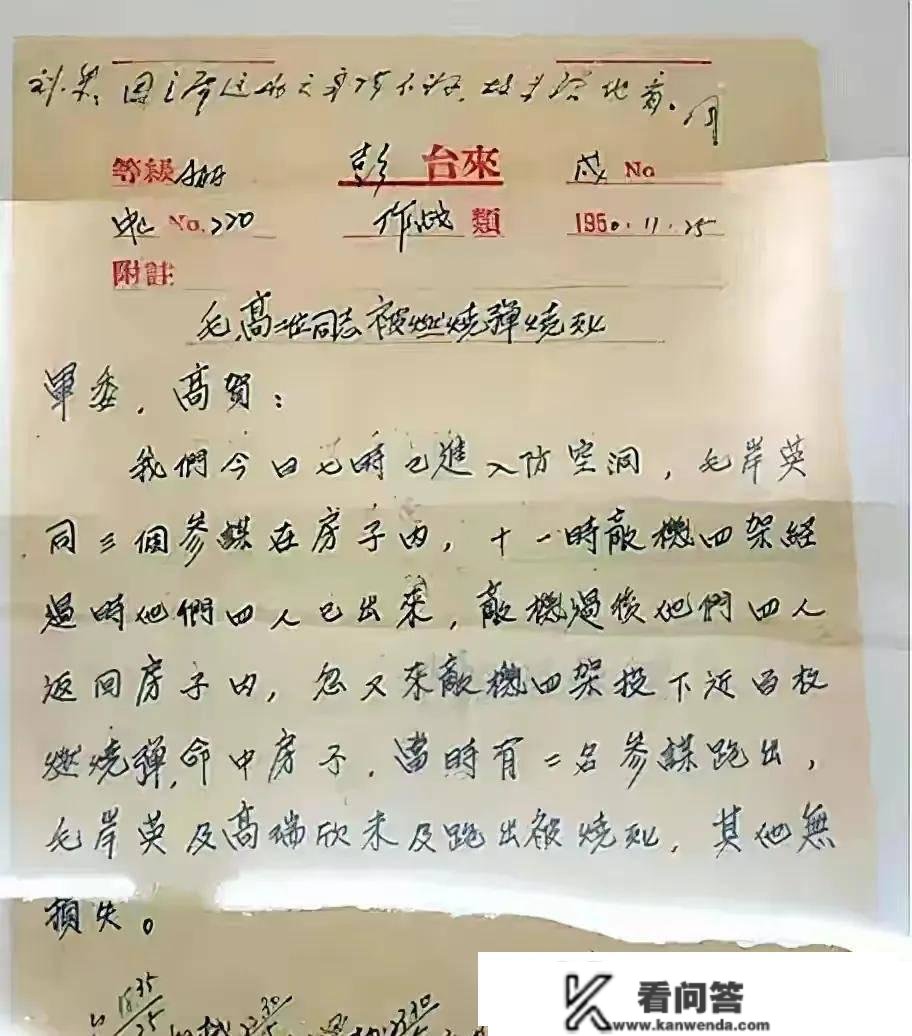 刘、
等級 AAAA 彭 台來 戌 No
No. 220 作战 類 1950.11.25
附註
毛,高二位同志被燃燒彈燒死
軍委,高賀:
我們今日七時已進入防空洞,毛岸英
同三個參謀在房子內,十一時敵機四架経
過時他們四人已出來,敵機過後他們四人
返回房子内,忽又來敵機四架投下近百枚
燃燒彈,命中房子,當時有二名參謀跑出,
毛岸英及高瑞欣未及跑出被燒死,其他無
損失。
看问答
www.kanwenda.com